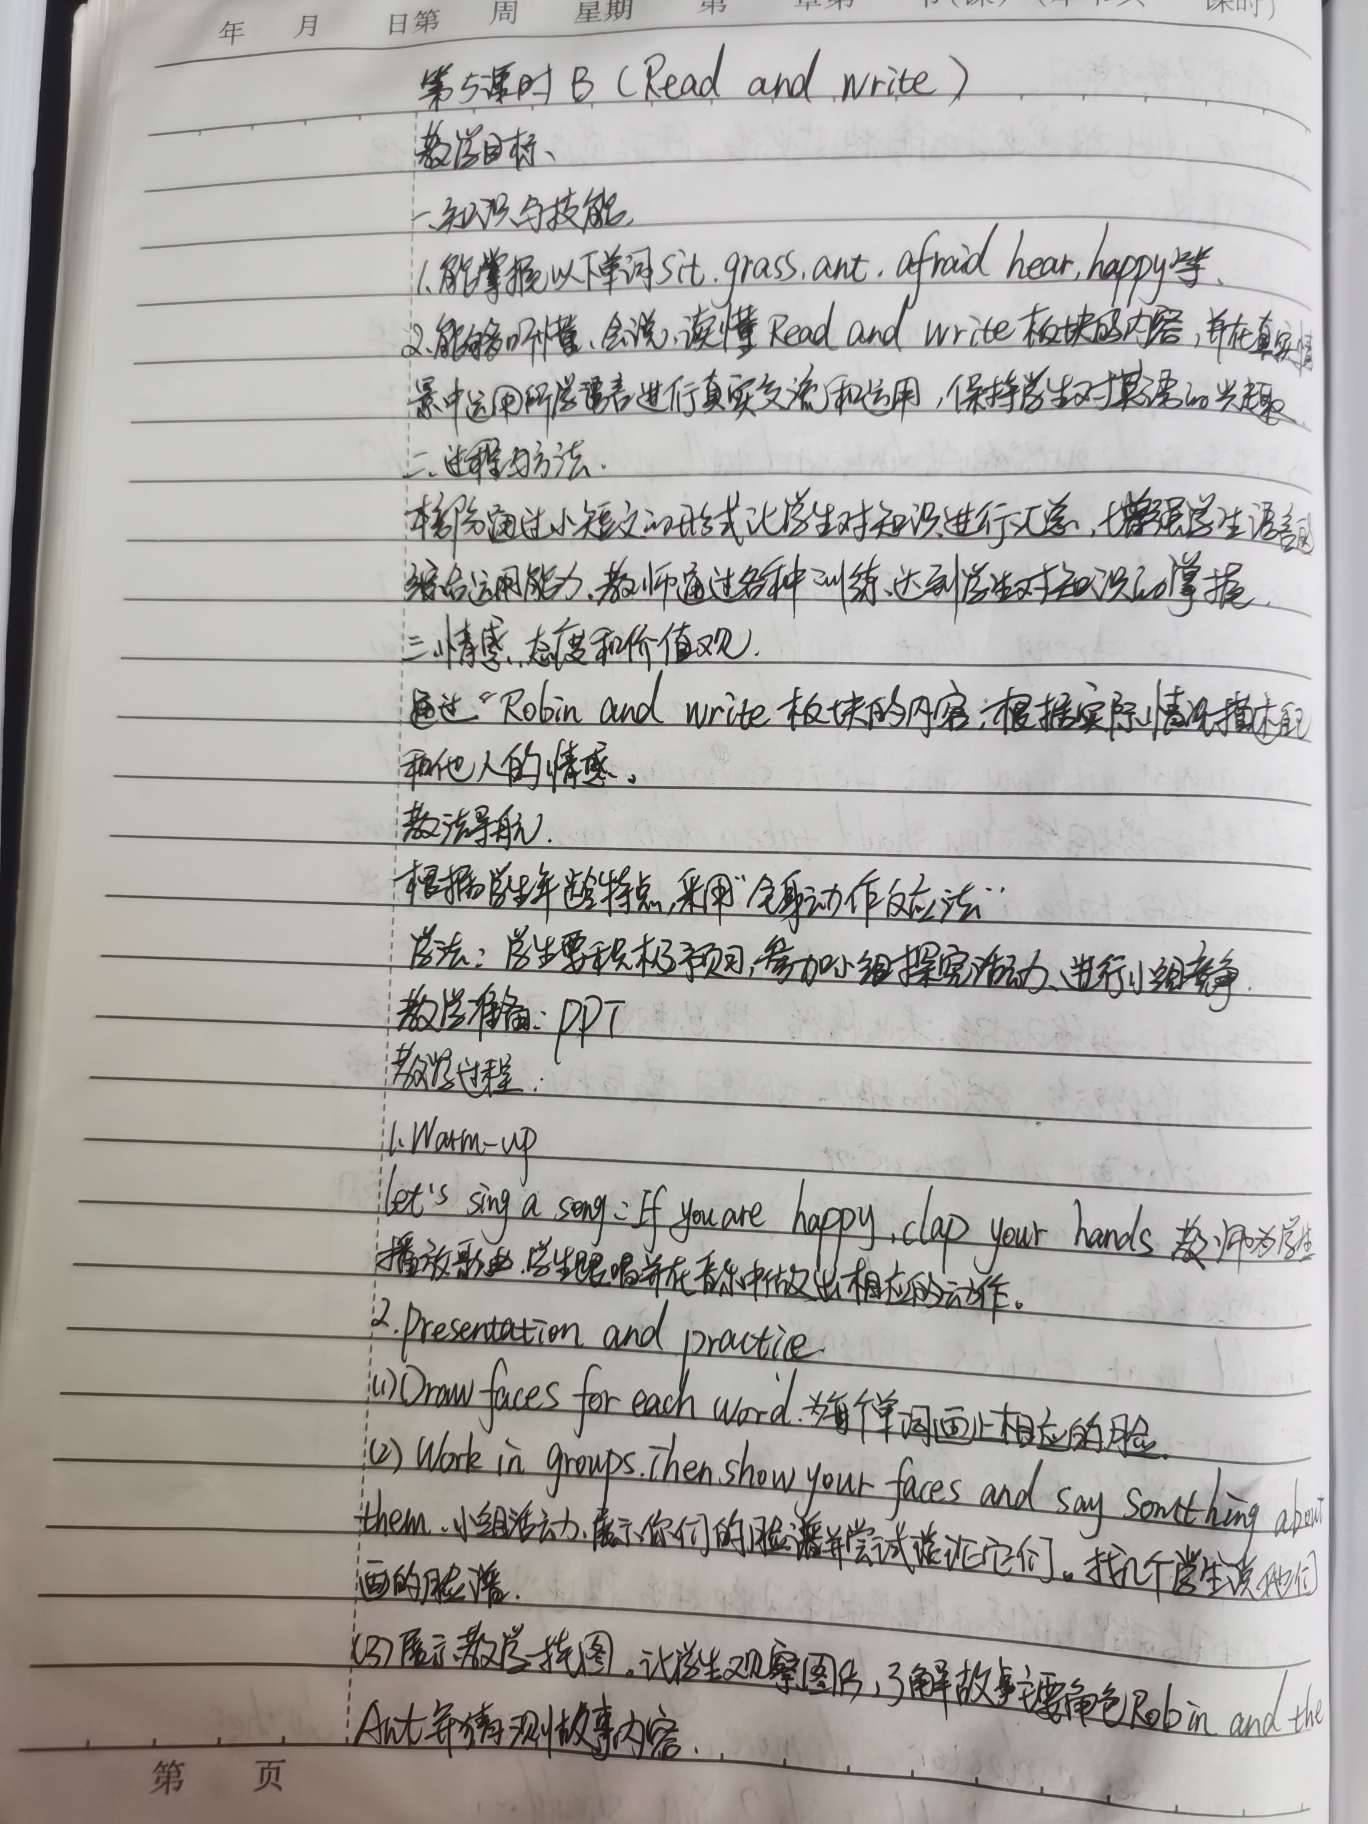 年 月 日第 周 星期 第 章第 节(课) 课时)
第5课时 B (Read and write)
教学目标、
一、知识与技能
1.能掌握以下单词 sit. grass. ant. afraid hear, happy等、
2.能够听懂、会说、读懂 Read and write 板块的内容,并在真实情
景中运用所学语言进行真实交流和运用,保持学生对英语的兴趣
二、过程与方法.
本部分通过小短文的形式让学生对知识进行汇总,增强学生语言的
综合运用能力.教师通过各种训练、达到学生对知识的掌握.
三、情感、态度和价值观.
通过“Robin and write 板块的内容,根据实际情况描述自己
和他人的情感。
教法导航.
根据学生年龄特点,采用“全身动作反应法”
学法:学生要积极预习,参加小组探究活动、进行小组竞争.
教学准备:PPT
教学过程:
1. Warm-up
let's sing a song: If you are happy, clap your hands 教师为学生
播放歌曲.学生跟唱并在音乐中做出相应的动作。
2. presentation and practice.
(1) Draw faces for each word.为每个单词画上相应的脸.
(2) Work in groups. Then show your faces and say somtthing about
them.小组活动.展示你们的脸谱并尝试谈论它们。找几个学生谈他们
画的脸谱.
(3)展示教学挂图。让学生观察图片,了解故事主要角色Robin and the
Ant并猜测故事内容.
第 页